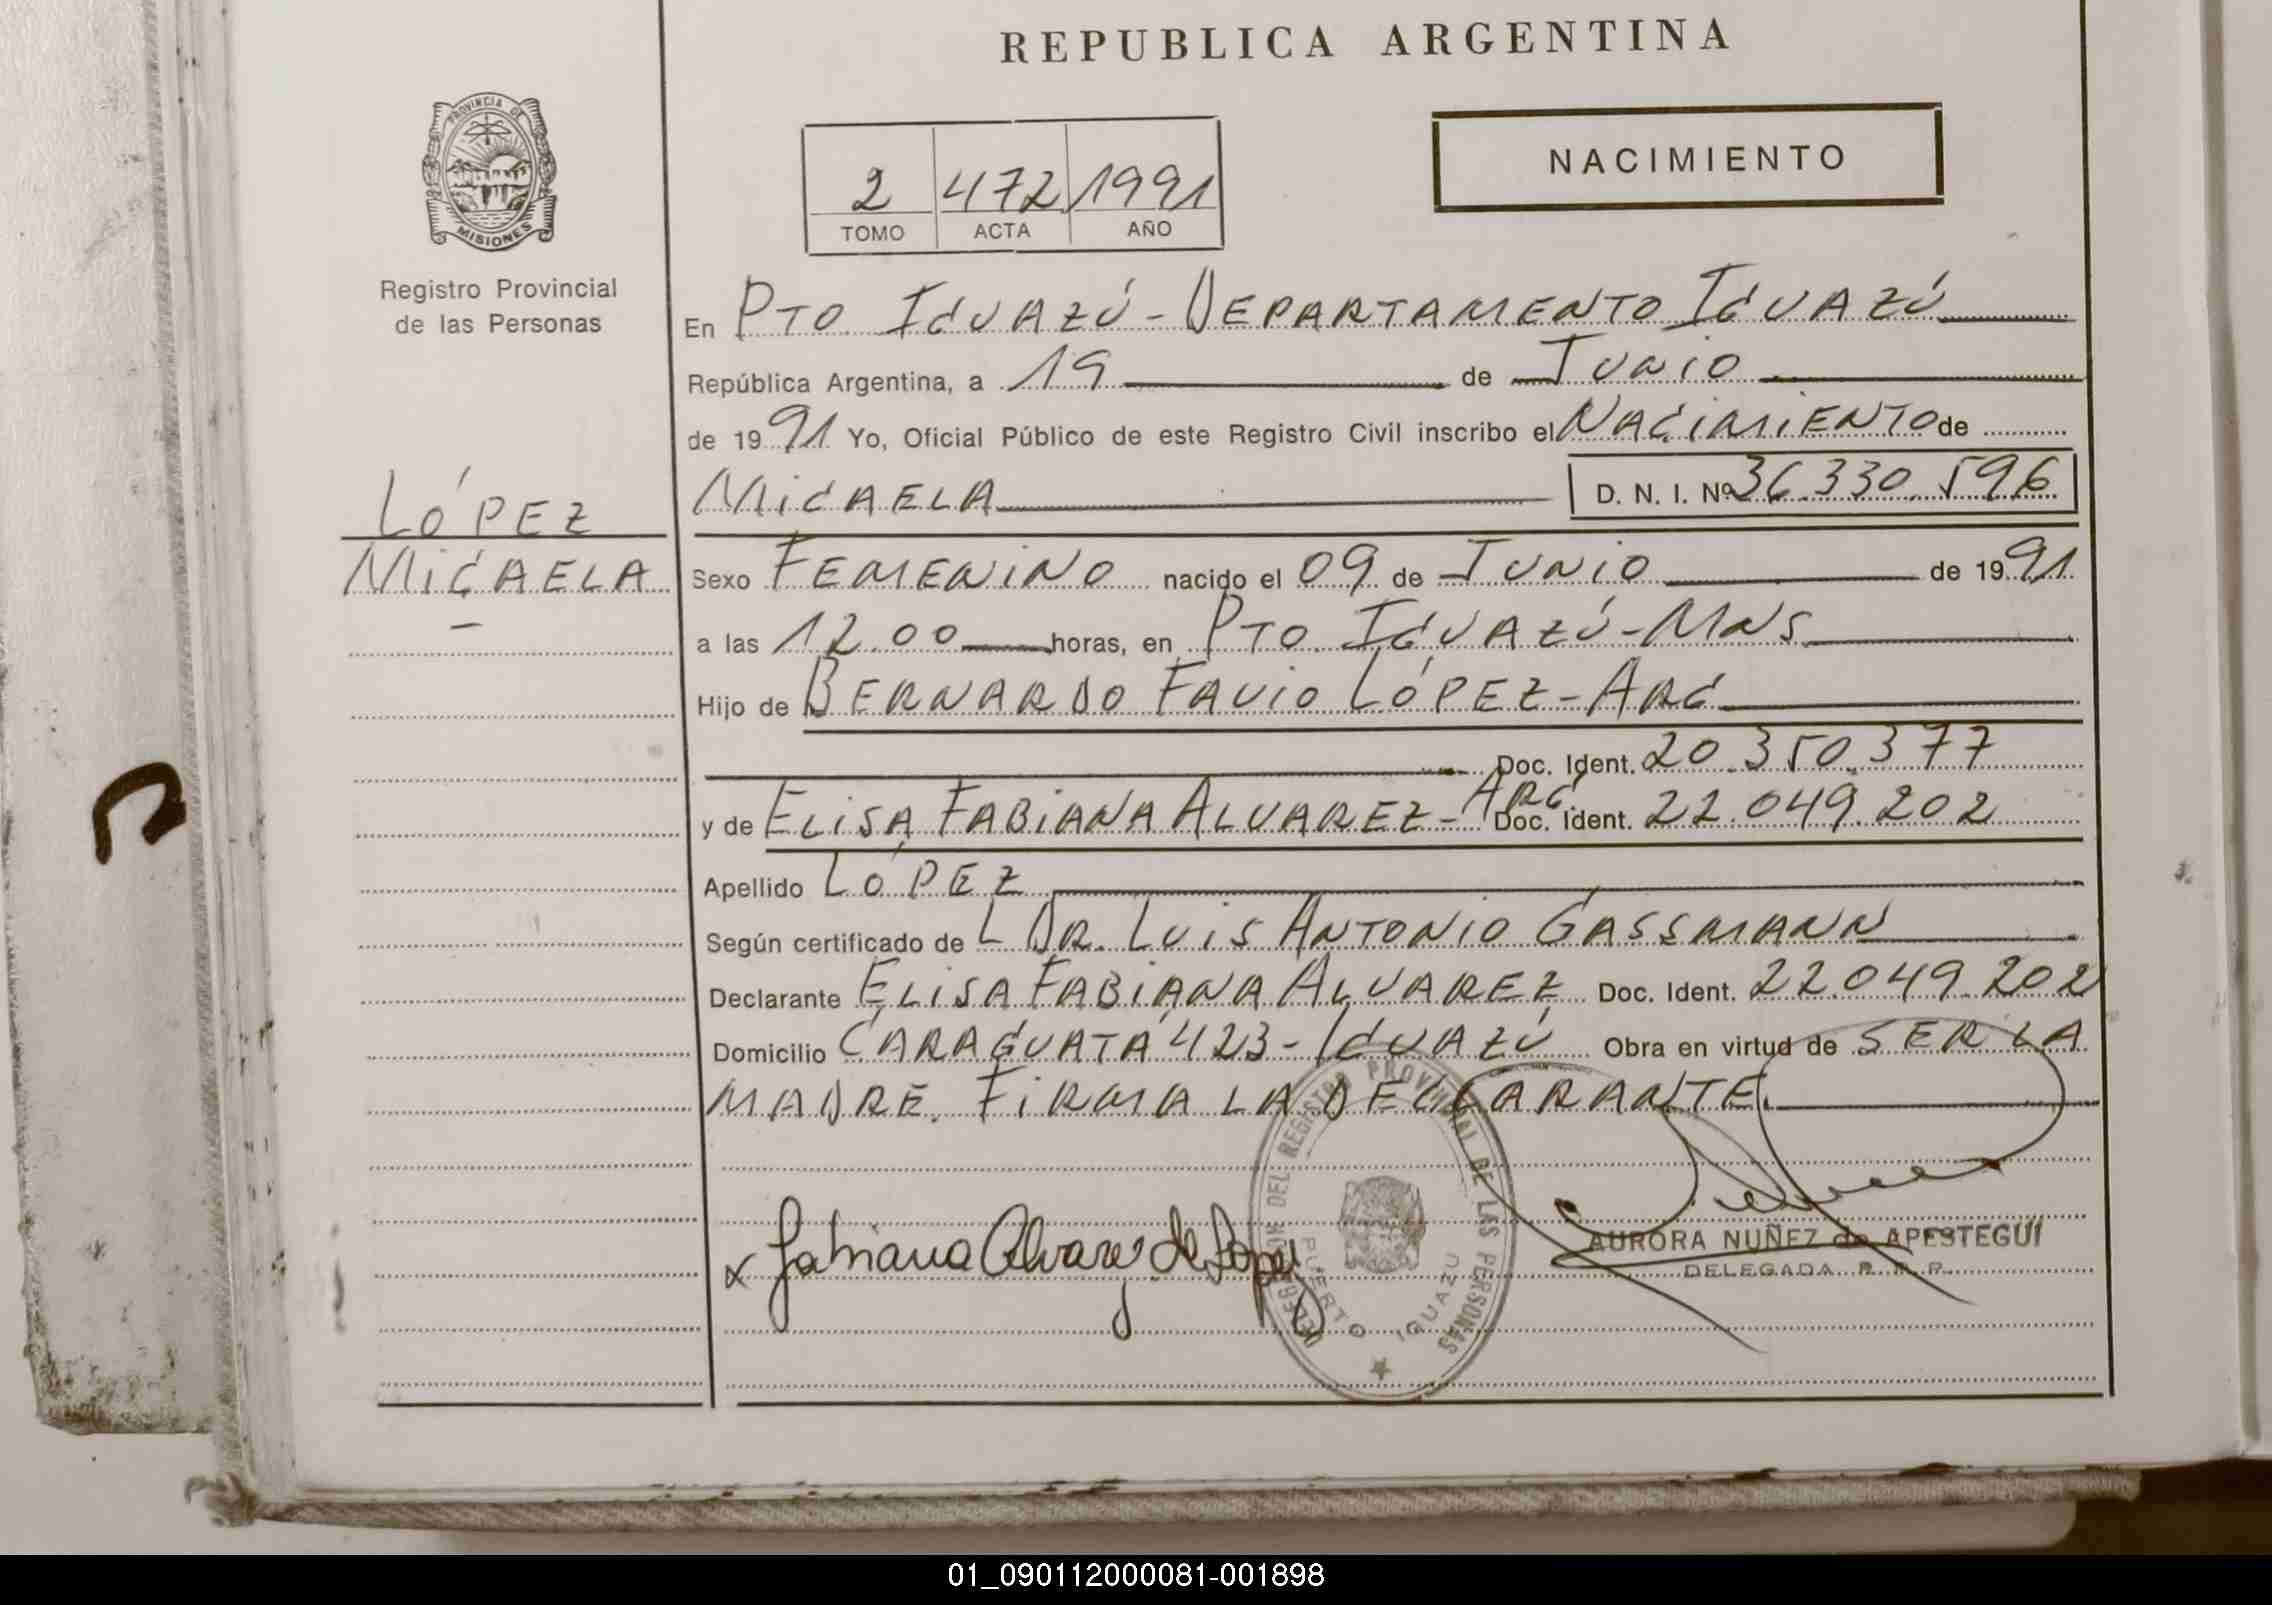 REPUBLICA ARGENTINA
PROVINCIA DE
MISIONES
Registro Provincial
de las Personas
NACIMIENTO
2 472 1991
TOMO ACTA AÑO
En PTO IGUAZÚ - DEPARTAMENTO IGUAZÚ
República Argentina, a 19 de JUNIO
de 1991 Yo, Oficial Público de este Registro Civil inscribo el NACIMIENTO de
MICAELA D. N. I. Nº 36.330.596
LÓPEZ
MICAELA
Sexo FEMENINO nacido el 09 de JUNIO de 1991
a las 12.00 horas, en PTO. IGUAZÚ - MNS
Hijo de BERNARDO FAVIO LÓPEZ - ARG
Doc. Ident. 20.350.377
y de ELISA FABIANA ALVAREZ - ARG. Doc. Ident. 22.049.202
Apellido LÓPEZ
Según certificado de L DR. LUIS ANTONIO GASSMANN
Declarante ELISA FABIANA ALVAREZ Doc. Ident. 22.049.202
Domicilio CARAGUATÁ 423 - IGUAZÚ Obra en virtud de SER LA
MADRE. FIRMA LA DECLARANTE.
x Fabiana Alvarez de Lopez
DELEGACION DEL REGISTRO PROVINCIAL DE LAS PERSONAS
PUERTO IGUAZU
AURORA NUÑEZ de APESTEGUI
DELEGADA R. P. P.
01_090112000081-001898